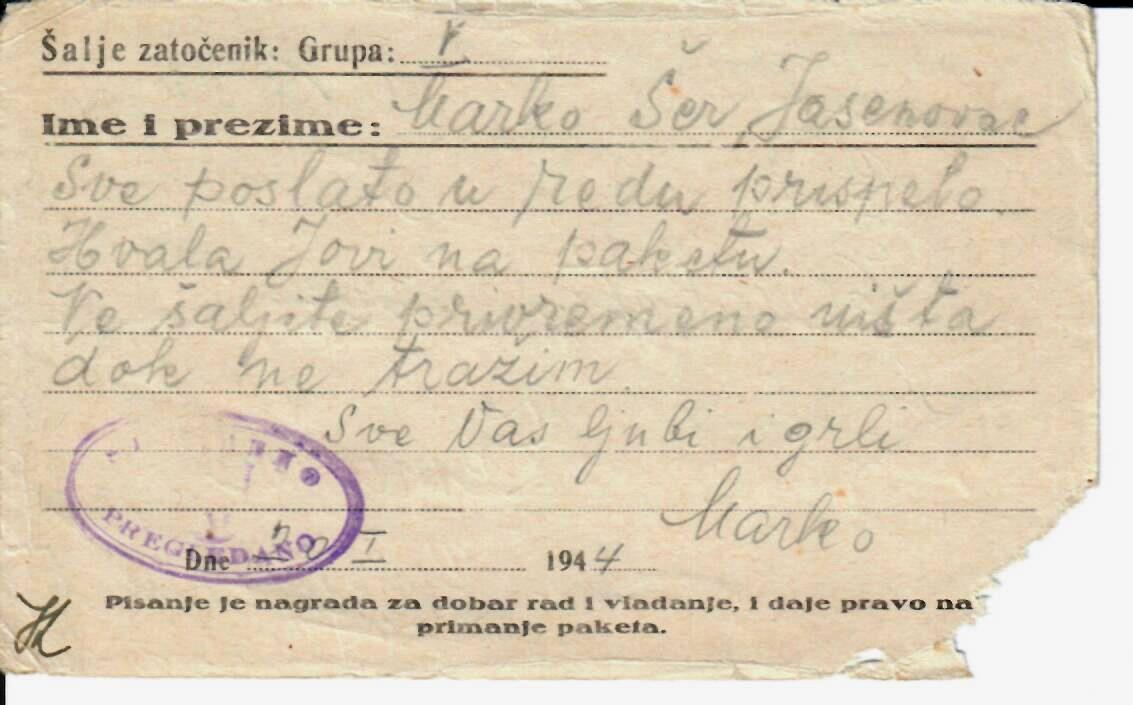 Šalje zatočenik: Grupa: V
Ime i prezime: Marko Šer Jasenovac
Sve poslato u redu prispelo.
Hvala Jovi na paketu.
Ne šaljite privremeno ništa
dok ne tražim.
Sve Vas ljubi i grli
Marko
PREGLEDANO
Dne 20 I 1944
Pisanje je nagrada za dobar rad i vladanje, i daje pravo na
primanje paketa.